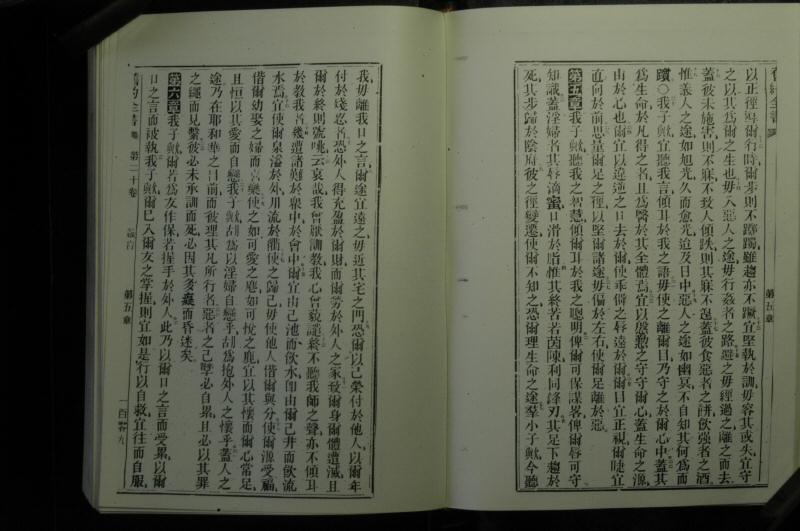 舊約全書
以正徑與爾行時爾步則不躑躅雖趨亦不蹶宜堅執於訓毋容其或失宜守
之以其為爾之生也毋入惡人之途毋行姦者之路避之毋經過之離之而去
蓋彼未施害則不寐不致人傾跌則其寐不遑蓋彼食惡者之餅飲強者之酒
惟義人之途如旭光久而愈光迨及日中惡人之途如幽冥不自知其何為而
躓○我子歟宜聽我言傾耳於我之語毋使之離爾目乃守之於爾心中蓋其
為生命於凡得之者且為醫於其全體焉宜以殷懃之守守爾心蓋生命之源
由於心也爾宜以違逆之口去於爾使乖僻之唇遠於爾爾目宜正視爾睫宜
直向於前思量爾足之徑以堅爾諸途毋偏於左右使爾足離於惡
第五章我子歟聽我之智慧傾爾耳於我之聰明俾爾可保謀畧俾爾唇可守
知識蓋淫婦者其唇滴蜜口滑於脂惟其終苦若茵陳利同鋒刃其足下趨於
死其步歸於陰府彼之徑變遷使爾不知之恐爾理生命之途羣小子歟今聽
第五章
我毋離我口之言爾途宜遠之毋近其宅之門恐爾以己榮付於他人以爾年
付於殘忍者恐外人得充盈於爾財而爾勞於外人之家致爾身爾體遭滅且
爾於終則號咷云哀哉我曾厭訓教我心曾藐譴終不聽我師之聲亦不傾耳
於教我者幾遭諸難於眾中於會中爾宜由己池而飲水卽由爾己井而飲流
水焉宜使爾泉溢於外川流於衢使之歸己毋使他人偕爾與分使爾源受福
偕爾幼娶之婦而喜樂使之如可愛之麀如可悅之鹿宜以其懷而爾心常足
且恒以其愛而自戀我子歟胡為以淫婦自戀乎胡為抱外人之懷乎蓋人之
途乃在耶和華之目前而彼理其凡所行者惡者之己孽必自累且必以其罪
之繩而見繫彼必未承訓而死必因其多癡而昏迷矣
第六章我子歟爾若為友作保若握手於外人此乃以爾口之言而受累以爾
口之言而被執我子歟爾已入爾友之掌握則宜如是行以自救宜往而自服
舊約全書 第二十卷 第五章 一百零九